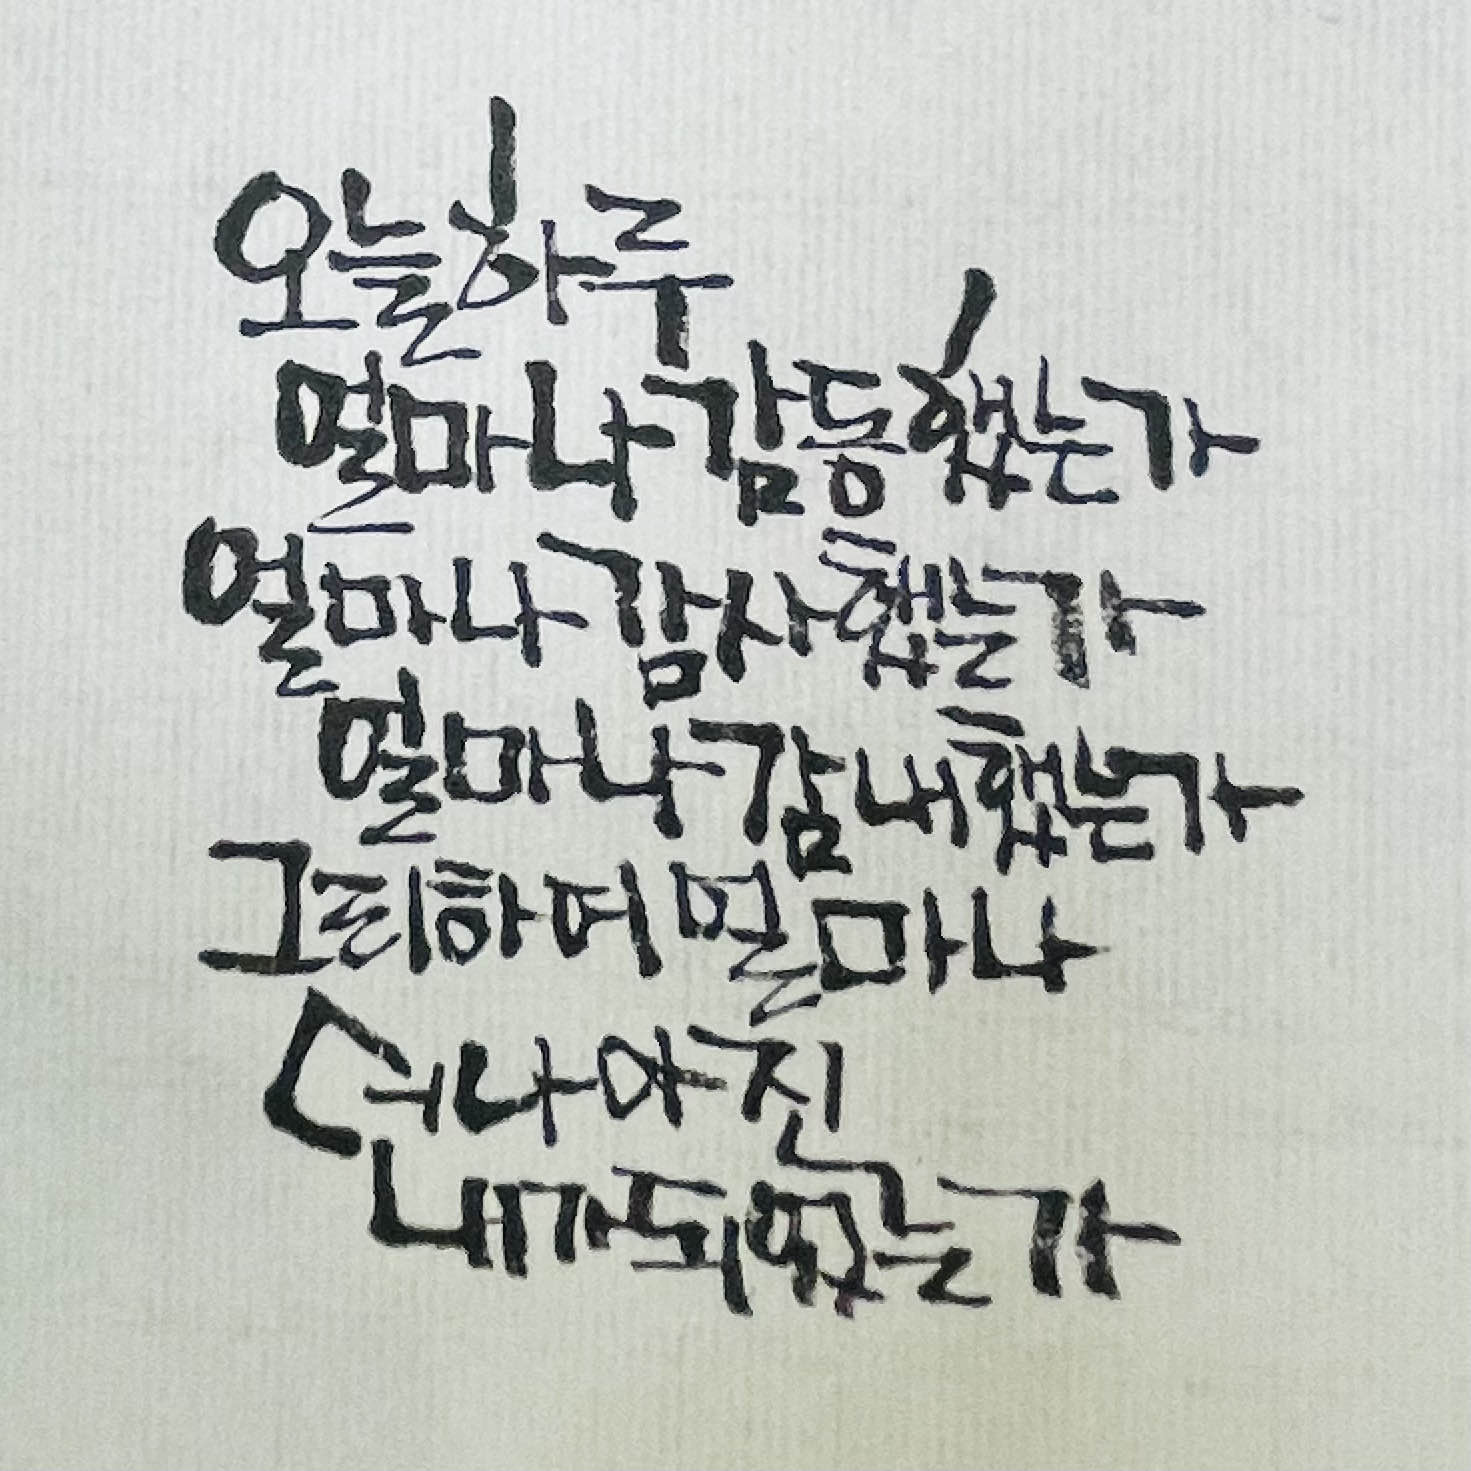 오늘 하루
얼마나 감동했는가
얼마나 감사했는가
얼마나 감내했는가
그리하여 얼마나
더 나아진
내가 되었는가